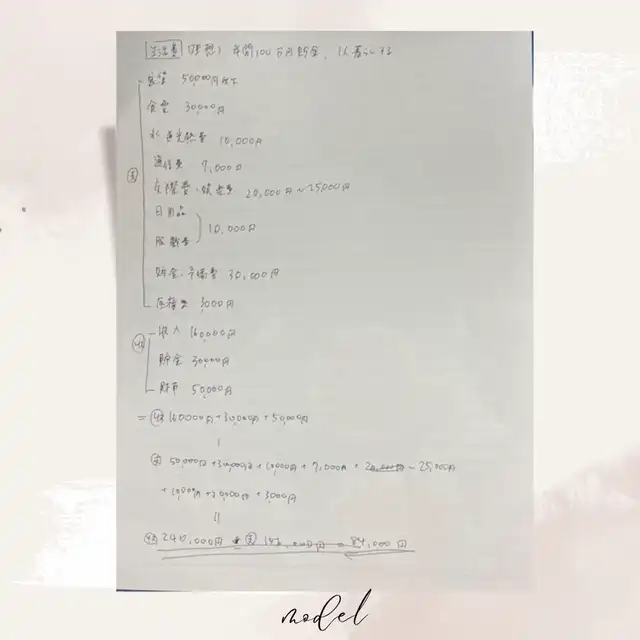 生活費 (理想) 年間100万円貯金、1人暮らし
家賃 50,000円以下
食費 30,000円
水道光熱費 10,000円
通信費 7,000円
交際費・娯楽費 20,000円〜25,000円
日用品
服飾費 10,000円
貯金・予備費 30,000円
医療費 3,000円
支
収入 160,000円
貯金 30,000円
財布 50,000円
収
= 収 160000円+30,000円+50,000円
支 50,000円+30,000円+10,000円+7,000円+ 〜25,000円
+10,000円+30,000円+3,000円
収 240,000円 支
model